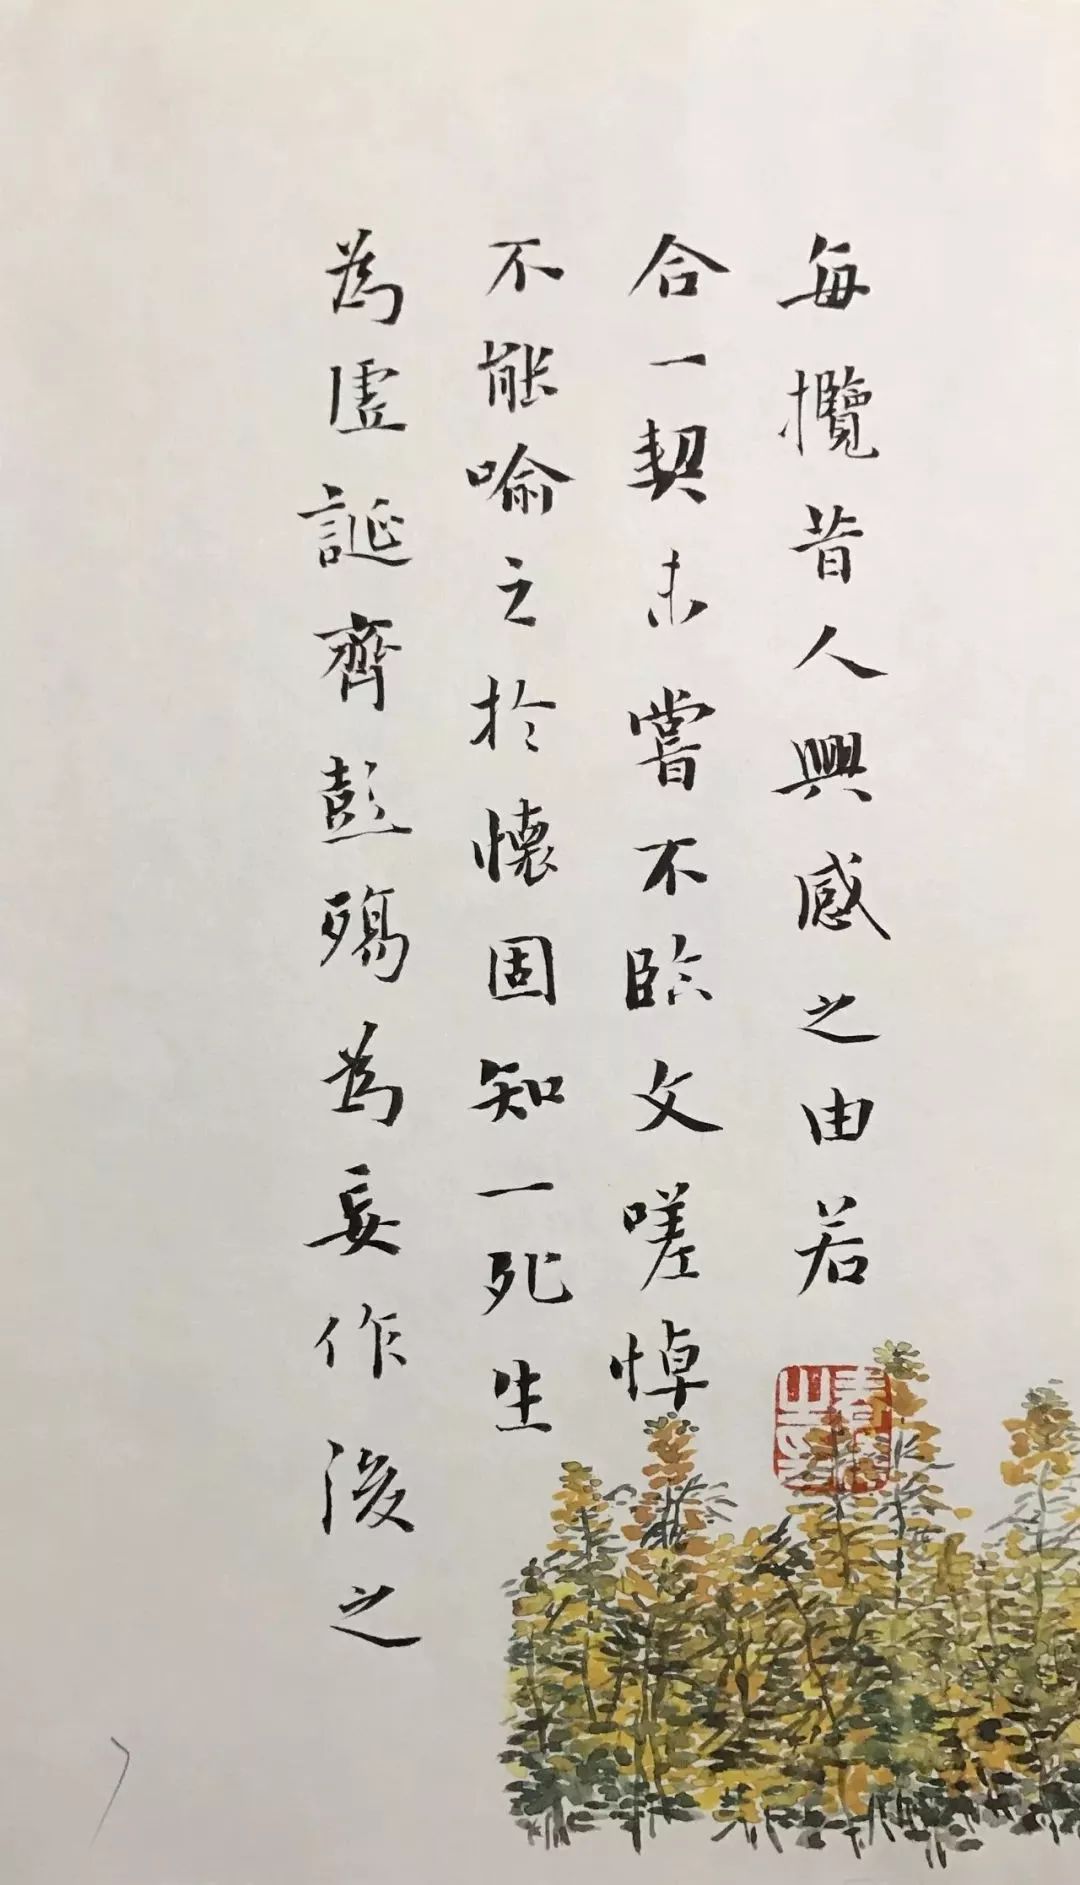 每攬昔人興感之由若
合一契未嘗不臨文嗟悼
不能喻之於懷固知一死生
為虛誕齊彭殤為妄作後之